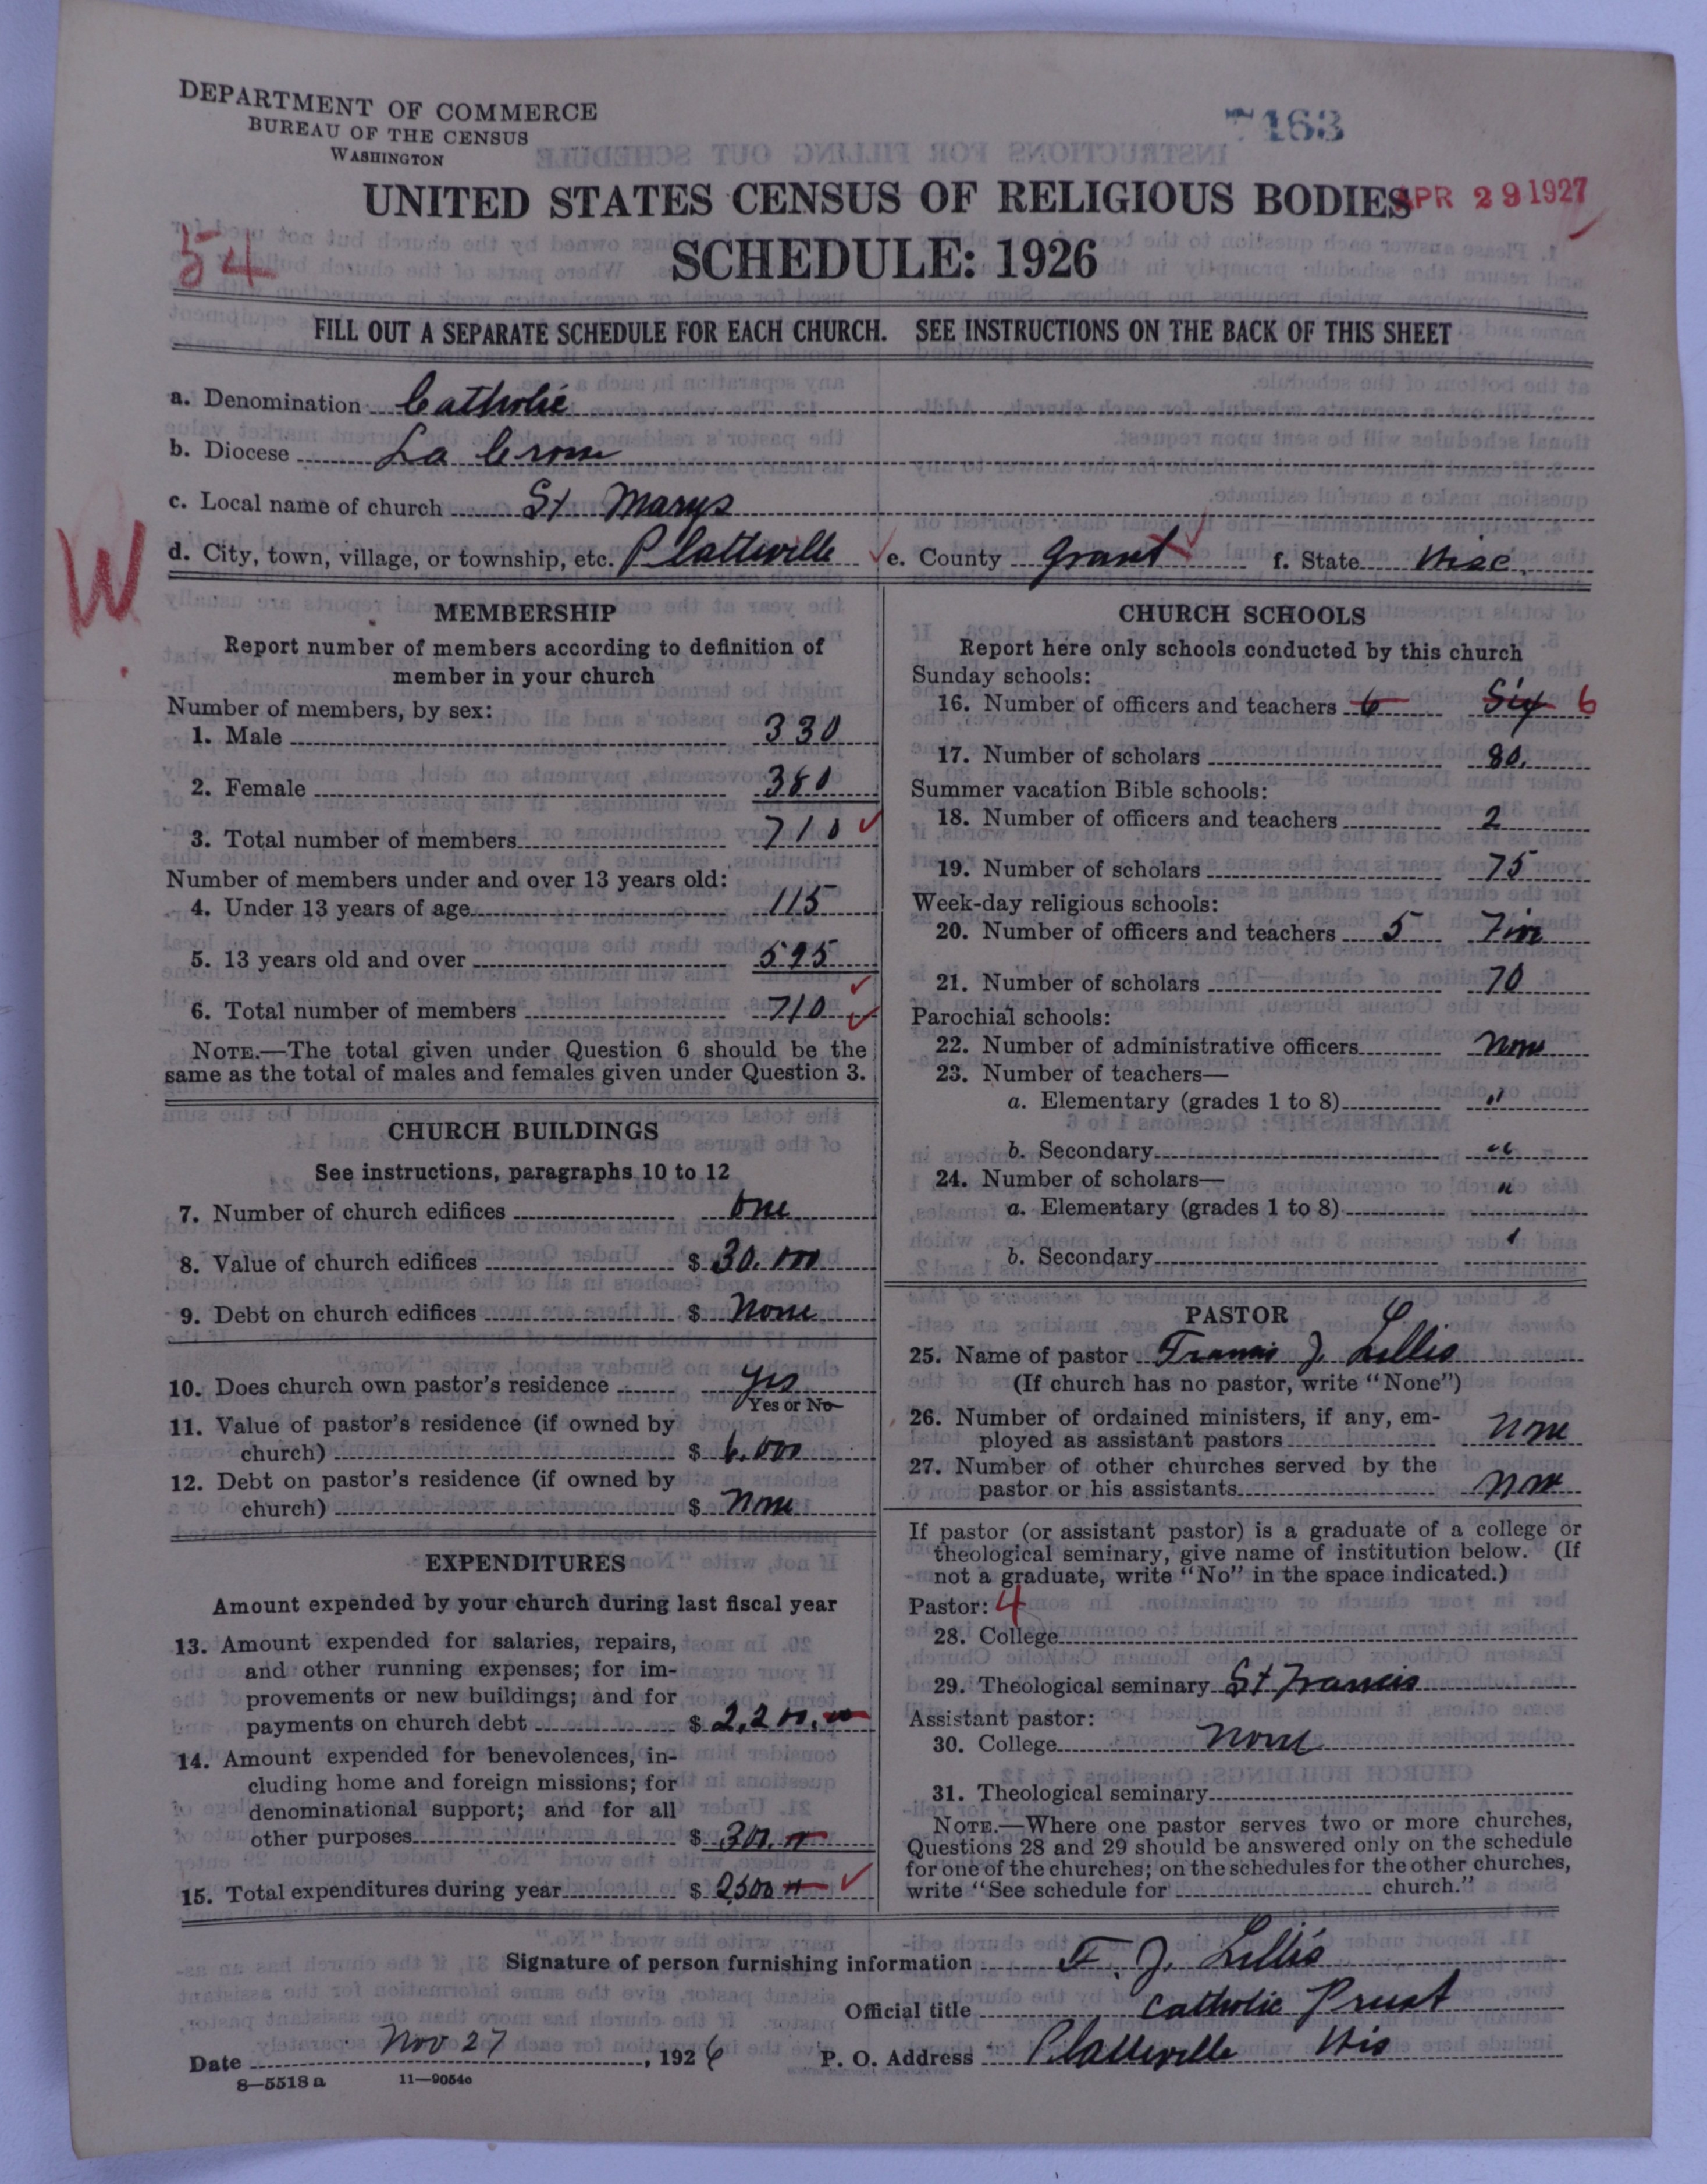 DEPARTMENT OF COMMERCE
BUREAU OF THE CENSUS
WASHINGTON
7163
UNITED STATES CENSUS OF RELIGIOUS BODIES
APR 29 1927
SCHEDULE: 1926
54
FILL OUT A SEPARATE SCHEDULE FOR EACH CHURCH. SEE INSTRUCTIONS ON THE BACK OF THIS SHEET
a. Denomination Catholic
b. Diocese La Crosse
c. Local name of church St Marys
W.
d. City, town, village, or township, etc. Platteville e. County Grant f. State Wisc.
MEMBERSHIP
Report number of members according to definition of
member in your church
Number of members, by sex:
1. Male 330
2. Female 380
3. Total number of members 710
Number of members under and over 13 years old:
4. Under 13 years of age 115
5. 13 years old and over 595
6. Total number of members 710
NOTE.—The total given under Question 6 should be the
same as the total of males and females given under Question 3.
CHURCH BUILDINGS
See instructions, paragraphs 10 to 12
7. Number of church edifices one
8. Value of church edifices $ 30,000
9. Debt on church edifices $ None
10. Does church own pastor's residence yes
Yes or No
11. Value of pastor's residence (if owned by
church) $ 6,000
12. Debt on pastor's residence (if owned by
church) $ None
EXPENDITURES
Amount expended by your church during last fiscal year
13. Amount expended for salaries, repairs,
and other running expenses; for im-
provements or new buildings; and for
payments on church debt $ 2,200.00
14. Amount expended for benevolences, in-
cluding home and foreign missions; for
denominational support; and for all
other purposes $ 300.00
15. Total expenditures during year $ 2500 00
CHURCH SCHOOLS
Report here only schools conducted by this church
Sunday schools:
16. Number of officers and teachers 6 Six 6
17. Number of scholars 80.
Summer vacation Bible schools:
18. Number of officers and teachers 2
19. Number of scholars 75
Week-day religious schools:
20. Number of officers and teachers 5 Five
21. Number of scholars 70
Parochial schools:
22. Number of administrative officers None
23. Number of teachers—
a. Elementary (grades 1 to 8) "
b. Secondary "
24. Number of scholars—
a. Elementary (grades 1 to 8) "
b. Secondary
PASTOR
25. Name of pastor Francis J. Lillis
(If church has no pastor, write "None")
26. Number of ordained ministers, if any, em-
ployed as assistant pastors None
27. Number of other churches served by the
pastor or his assistants None
If pastor (or assistant pastor) is a graduate of a college or
theological seminary, give name of institution below. (If
not a graduate, write "No" in the space indicated.)
Pastor: 4
28. College
29. Theological seminary St Francis
Assistant pastor:
30. College None
31. Theological seminary
NOTE.—Where one pastor serves two or more churches,
Questions 28 and 29 should be answered only on the schedule
for one of the churches; on the schedules for the other churches,
write "See schedule for church."
Signature of person furnishing information F. J. Lillis
Official title Catholic Priest
Date Nov 27, 1926 P. O. Address Platteville Wis
8—5518 a 11—9054c